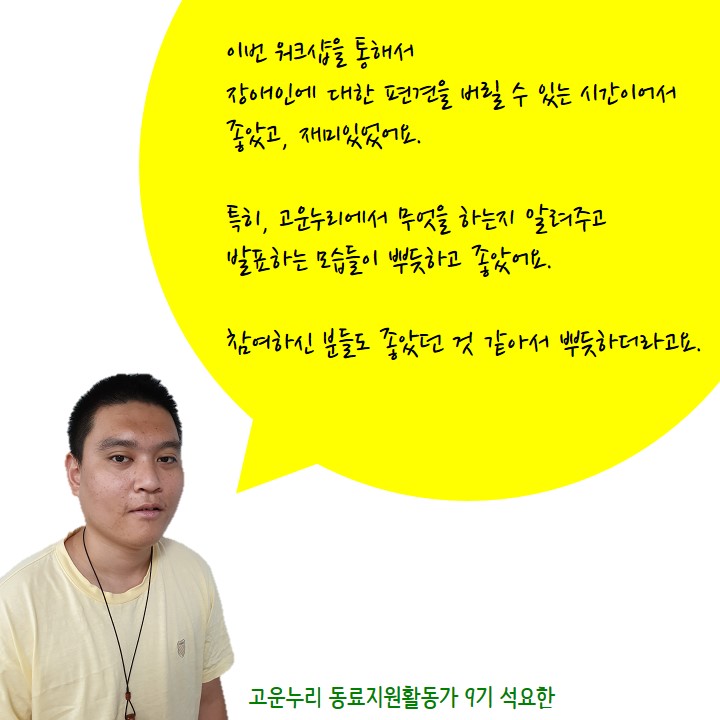 이번 워크샵을 통해서
장애인에 대한 편견을 버릴 수 있는 시간이어서
좋았고, 재미있었어요.
특히, 고운누리에서 무엇을 하는지 알려주고
발표하는 모습들이 뿌듯하고 좋았어요.
참여하신 분들도 좋았던 것 같아서 뿌듯하더라고요.
고운누리 동료지원활동가 9기 석요한